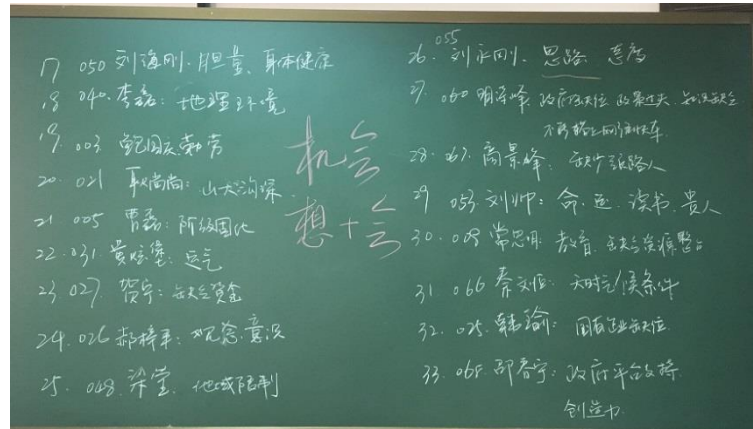 17 050 刘海刚、胆量、身体健康
18 040. 李磊: 地理环境
19. 003 鲍国庆 勤劳
20. 021 耿尚尚: 山大沟深
21 005 曹磊: 阶级固化
22. 031 黄 堡: 运气
23. 027. 贺宁: 缺乏资金
24. 026 郝梓 : 观念、意识
25. 048. 梁堂、地域限制
机会
想+会
055
26. 刘永刚、思路、态度
27. 060 明泽峰 政府缺位 政策过失 知识缺乏
不
28. 067. 高景峰: 缺少领路人
29 053 刘帅: 命、运、读书、贵人
30. 008 常思明 教育 缺乏资源整合
31. 066 秦文恒: 天时气候条件
32. 025. 韩瑜: 国有企业缺位
33. 068. 邵春宁: 政府平台支持
创造力